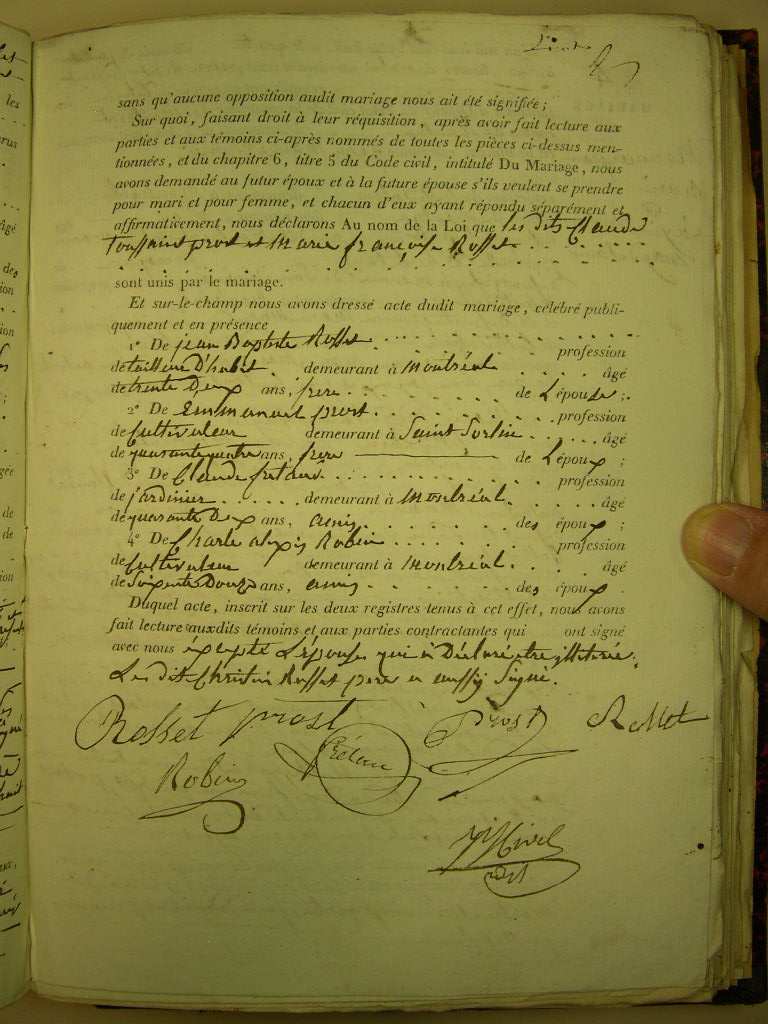 sans qu'aucune opposition audit mariage nous ait été signifiée ;
Sur quoi, faisant droit à leur réquisition, après avoir fait lecture aux
parties et aux témoins ci-après nommés de toutes les pièces ci-dessus men-
tionnées, et du chapitre 6, titre 5 du Code civil, intitulé Du Mariage, nous
avons demandé au futur époux et à la future épouse s'ils veulent se prendre
pour mari et pour femme, et chacun d'eux ayant répondu séparément et
affirmativement, nous déclarons Au nom de la Loi que les dits Claude
toussaint prost et Marie françoise Rosset
sont unis par le mariage.
Et sur-le-champ nous avons dressé acte dudit mariage, célébré publi-
quement et en présence
1° De jean Baptiste Rosset profession
de tailleur D'habit demeurant à Montréal âgé
de trente Deux ans, frere de L'épouse ;
2° De Emmanuel prost profession
de Cultivateur demeurant à Saint Sorlin âgé
de quarante quatre ans, frere de L'époux ;
3° De Claude profession
de jardinier demeurant à Montréal âgé
de quarante Deux ans, amis des époux ;
4° De Charle alexis Robin profession
de Cultivateur demeurant à Montréal âgé
de Soixente Douze ans, amis des époux.
Duquel acte, inscrit sur les deux registres tenus à cet effet, nous avons
fait lecture auxdits témoins et aux parties contractantes qui ont signé
avec nous éxepté L'épouse qui à Déclaré etre illiterée.
Les dit Christin Rosset pere a aussy Signé.
Rosset prost Prost Rosset
Robin